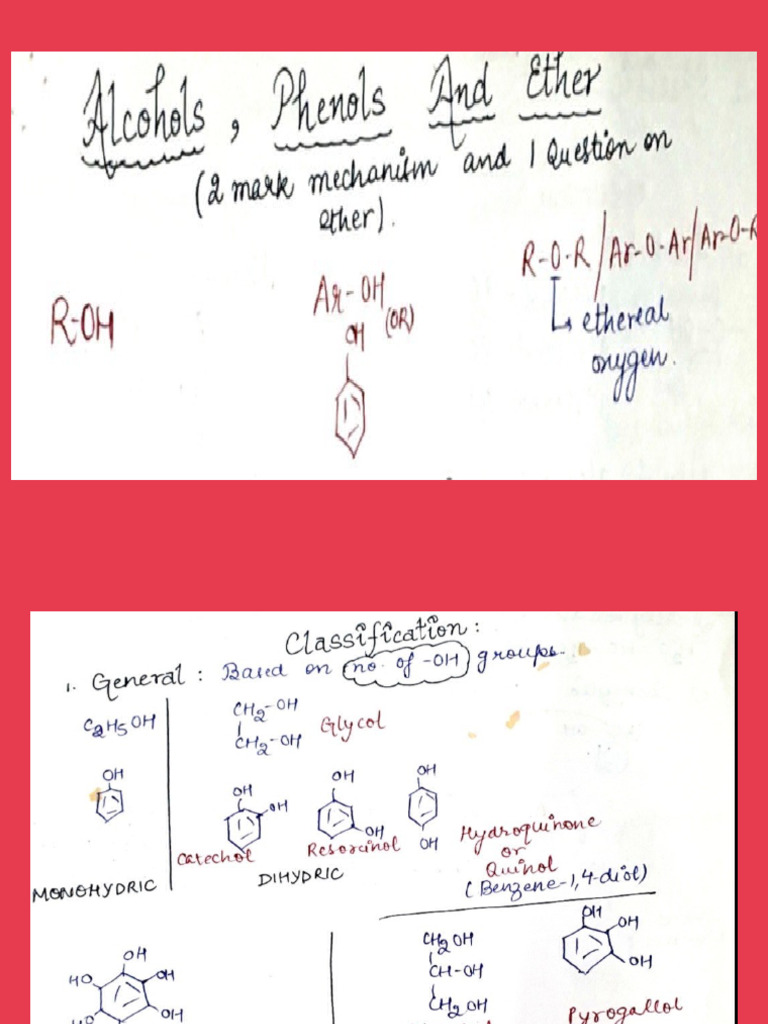 Alcohols, Phenols And Ether
(2 mark mechanism and 1 Question on
ether).
R-OH
Ar-OH
(OR)
OH
R-O-R/Ar-O-Ar/Ar-O-R
ethereal
oxygen.
Classification:
1. General: Based on no. of -OH groups.
C2H5OH
OH
MONOHYDRIC
CH2-OH
CH2-OH
Glycol
OH
OH
Catechol
OH
OH
Resorcinol
OH
OH
DIHYDRIC
Hydroquinone
or
Quinol
(Benzene-1,4-diol)
OH
HO
OH
OH
HO
CH2OH
CH-OH
CH2OH
OH
OH
OH
Pyrogallol